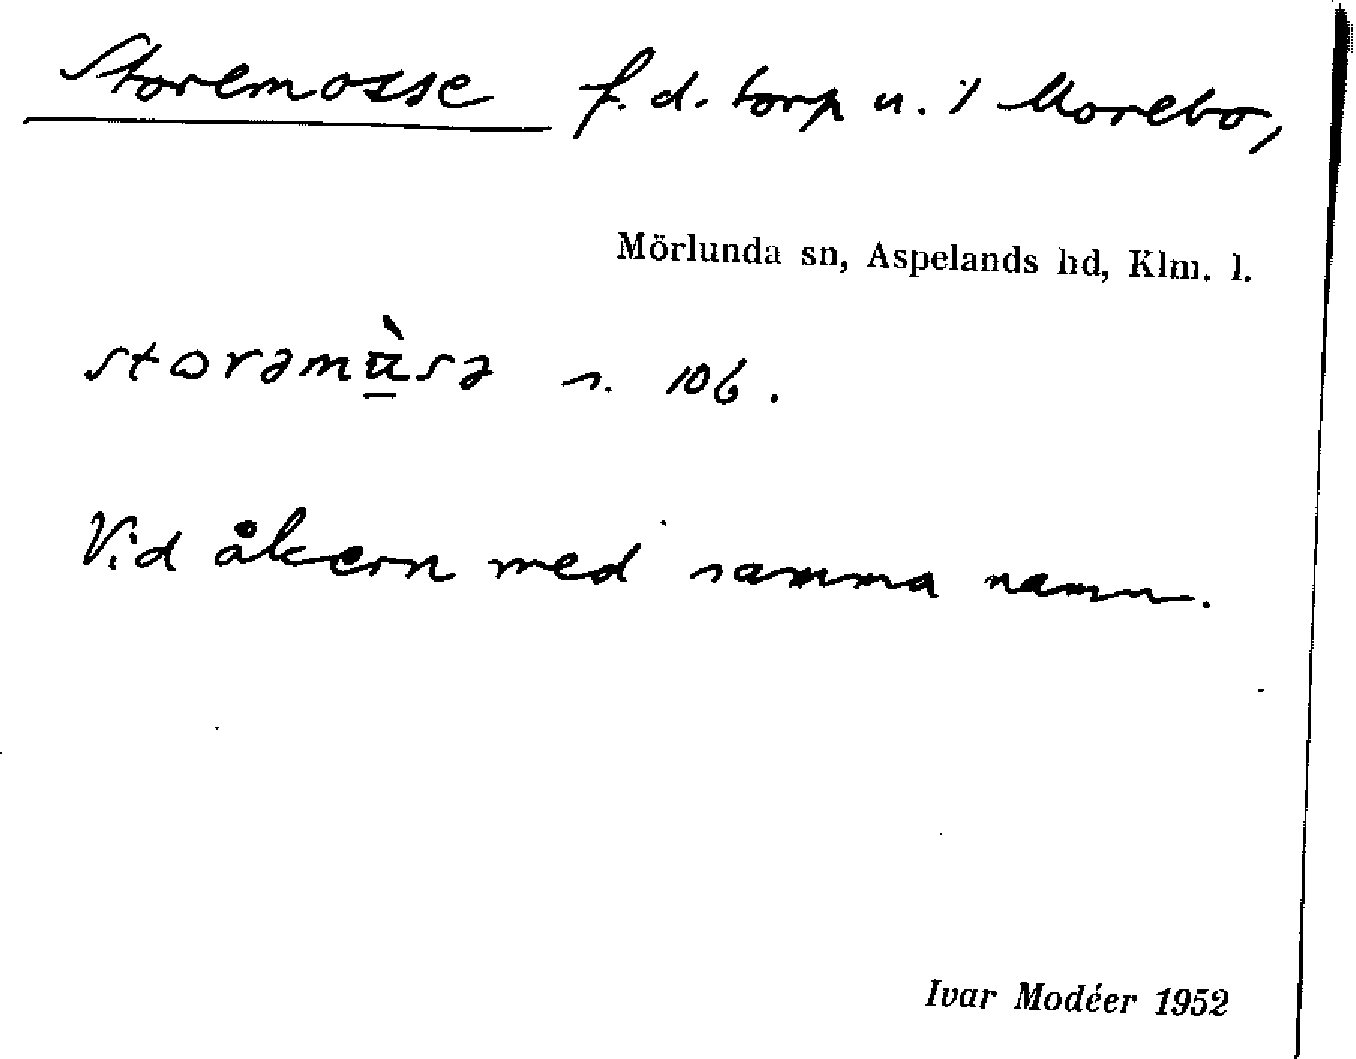 Storemosse f. d. torp u. 1 Morebo,
Mörlunda sn, Aspelands hd, Klm. l.
storəmùsə s. 106.
Vid åkern med samma namn.
Ivar Modéer 1952